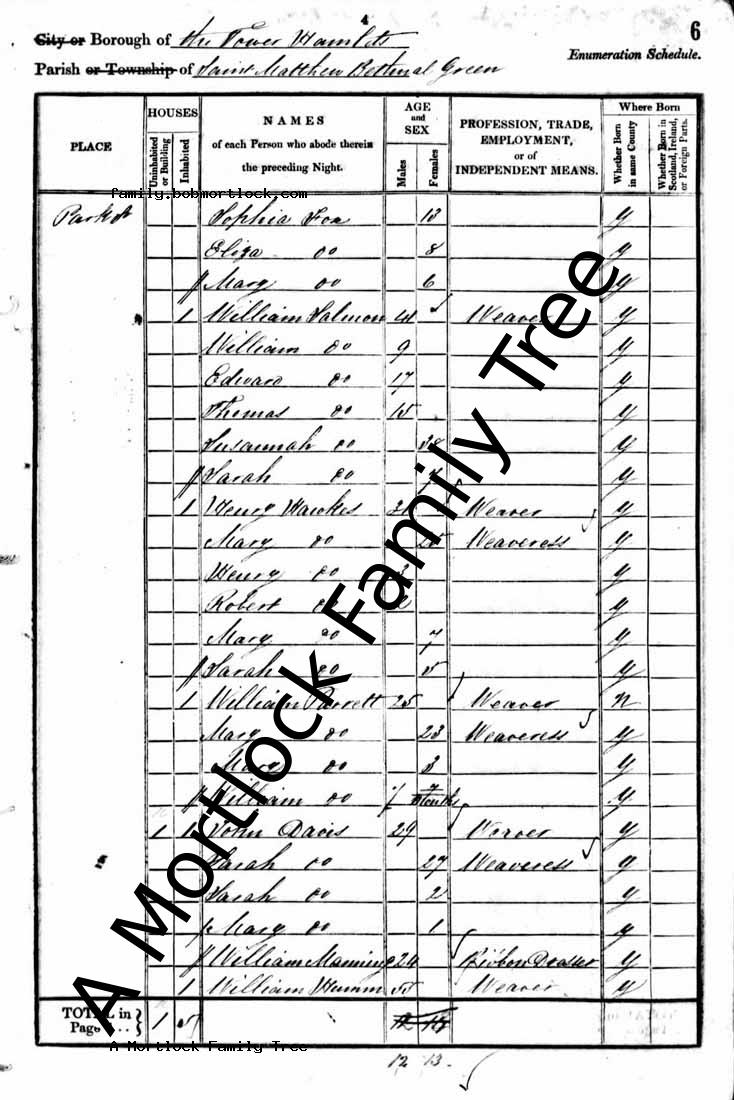 4
6
City or Borough of the Tower Hamlets
Enumeration Schedule.
Parish or Township of Saint Matthew Bethnal Green
PLACE
HOUSES
Uninhabited or Building
Inhabited
NAMES
of each Person who abode therein
the preceding Night.
AGE
and
SEX
Males
Females
PROFESSION, TRADE,
EMPLOYMENT,
or of
INDEPENDENT MEANS.
Where Born
Whether Born in same County
Whether Born in Scotland, Ireland, or Foreign Parts.
family.bobmortlock.com
Park St Sophia Fox 13 y
Eliza do 8 y
Mary do 6 y
1 William Salmon Weaver y
William do 9 y
Edward do 17 y
Thomas do 15 y
Susannah do 38 y
Sarah do y
1 Henry Hawkes Weaver y
Mary do Weaveress y
Henry do y
Robert do 2 y
Mary do 7 y
Sarah do 5 y
1 William Parrett 25 Weaver n
Mary do 23 Weaveress y
Mary do 3 y
William do Months y
1 1 John Davis 29 Weaver y
Sarah do 27 Weaveress y
Sarah do 2 y
Mary do 1 y
William Manning 24 Ribbon Dresser y
1 William 55 Weaver y
TOTAL in
Page 1 5
12 13
A Mortlock Family Tree
A Mortlock Family Tree